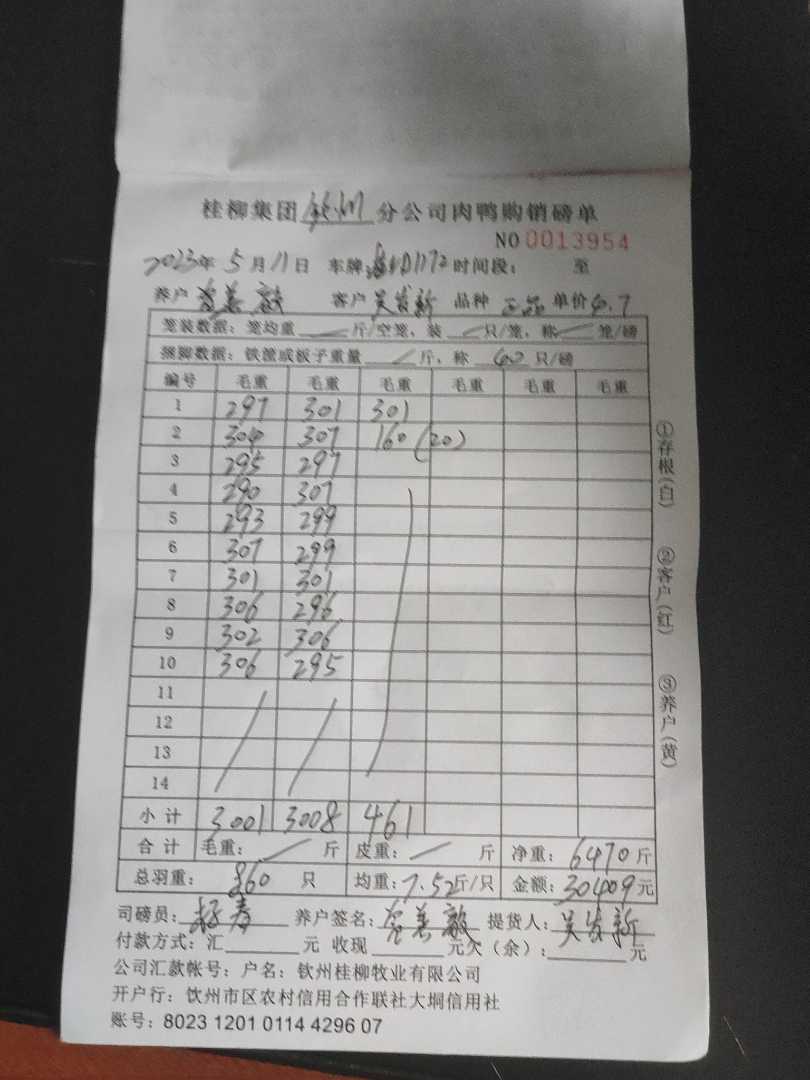 桂柳集团 钦州 分公司肉鸭购销磅单
NO 0013954
2023年 5月 11日 车牌: D1172 时间段: 至
养户 客户 吴发新 品种 正品 单价 4.7
笼装数据: 笼均重 斤/空笼, 装 只/笼, 称 笼/磅
捆脚数据: 铁篮或板子重量 斤, 称 60 只/磅
编号 毛重 毛重 毛重 毛重 毛重 毛重
1 297 301 301
2 304 307 160 (20)
3 295 297
4 290 307
5 293 299
6 307 299
7 301 301
8 306 296
9 302 306
10 306 295
11
12
13
14
小计 3001 3008 461
合计 毛重: 斤 皮重: 斤 净重: 6470 斤
总羽重: 860 只 均重: 7.52斤/只 金额: 30409元
司磅员: 养户签名: 提货人: 吴发新
付款方式: 汇 元 收现 元欠(余): 元
公司汇款帐号: 户名: 钦州桂柳牧业有限公司
开户行: 饮州市区农村信用合作联社大垌信用社
账号: 8023 1201 0114 4296 07
①存根(白) ②客户(红) ③养户(黄)